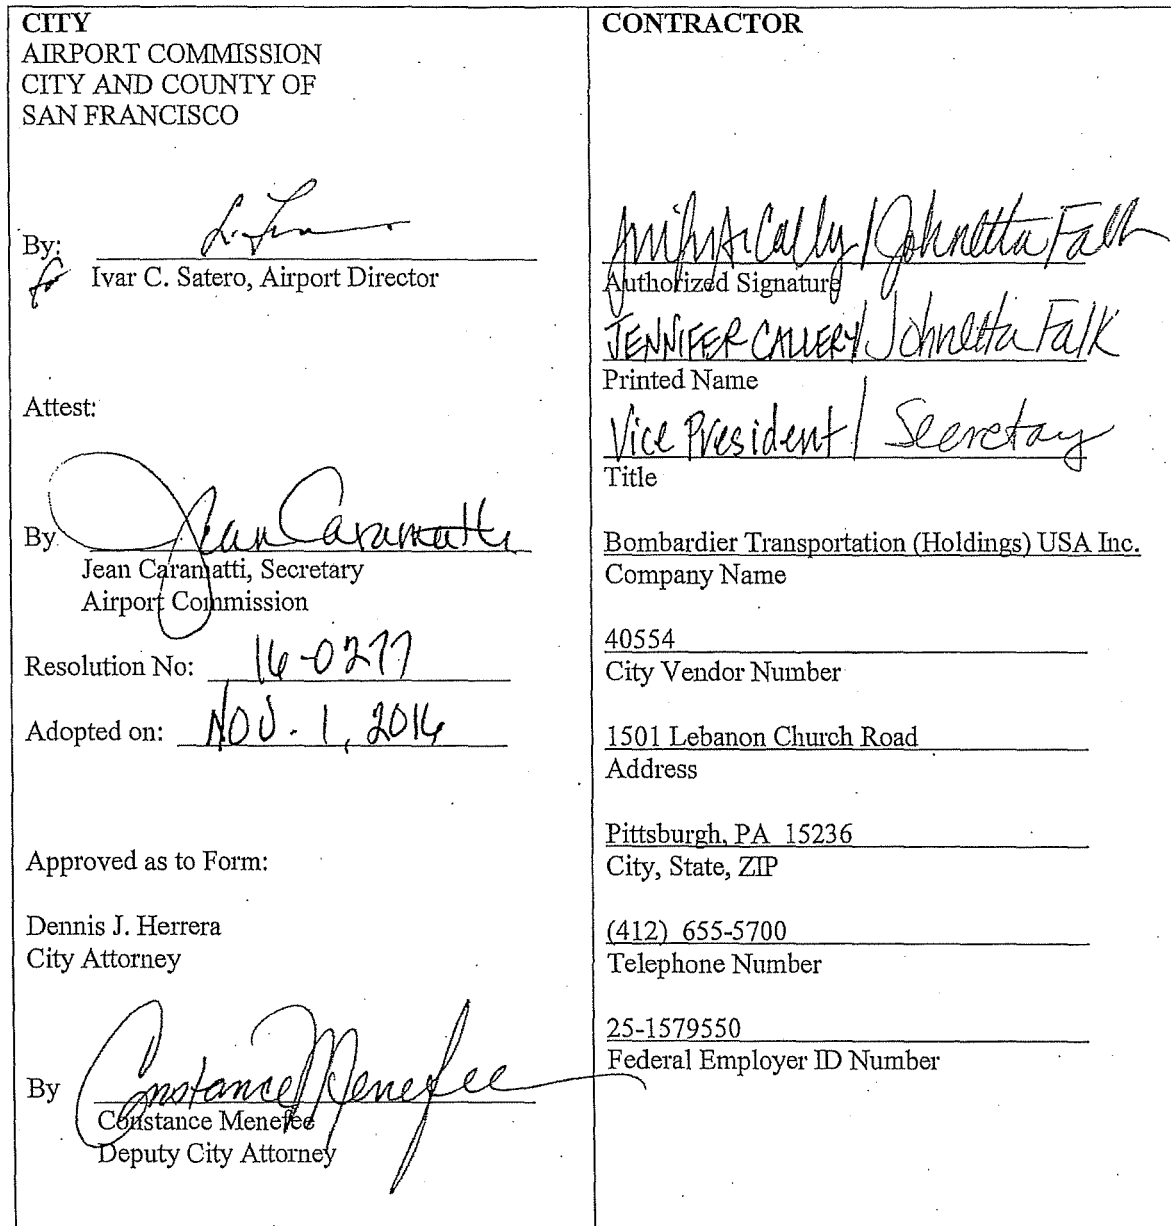 CITY
AIRPORT COMMISSION
CITY AND COUNTY OF
SAN FRANCISCO
By:
for Ivar C. Satero, Airport Director
Attest:
By Jean Caramatti
Jean Caramatti, Secretary
Airport Commission
Resolution No: 16-0277
Adopted on: NOV. 1, 2016
Approved as to Form:
Dennis J. Herrera
City Attorney
By Constance Menefee
Constance Menefee
Deputy City Attorney
CONTRACTOR
/ Johnetta Falk
Authorized Signature
JENNIFER CALLERY / Johnetta Falk
Printed Name
Vice President / Secretary
Title
Bombardier Transportation (Holdings) USA Inc.
Company Name
40554
City Vendor Number
1501 Lebanon Church Road
Address
Pittsburgh, PA 15236
City, State, ZIP
(412) 655-5700
Telephone Number
25-1579550
Federal Employer ID Number